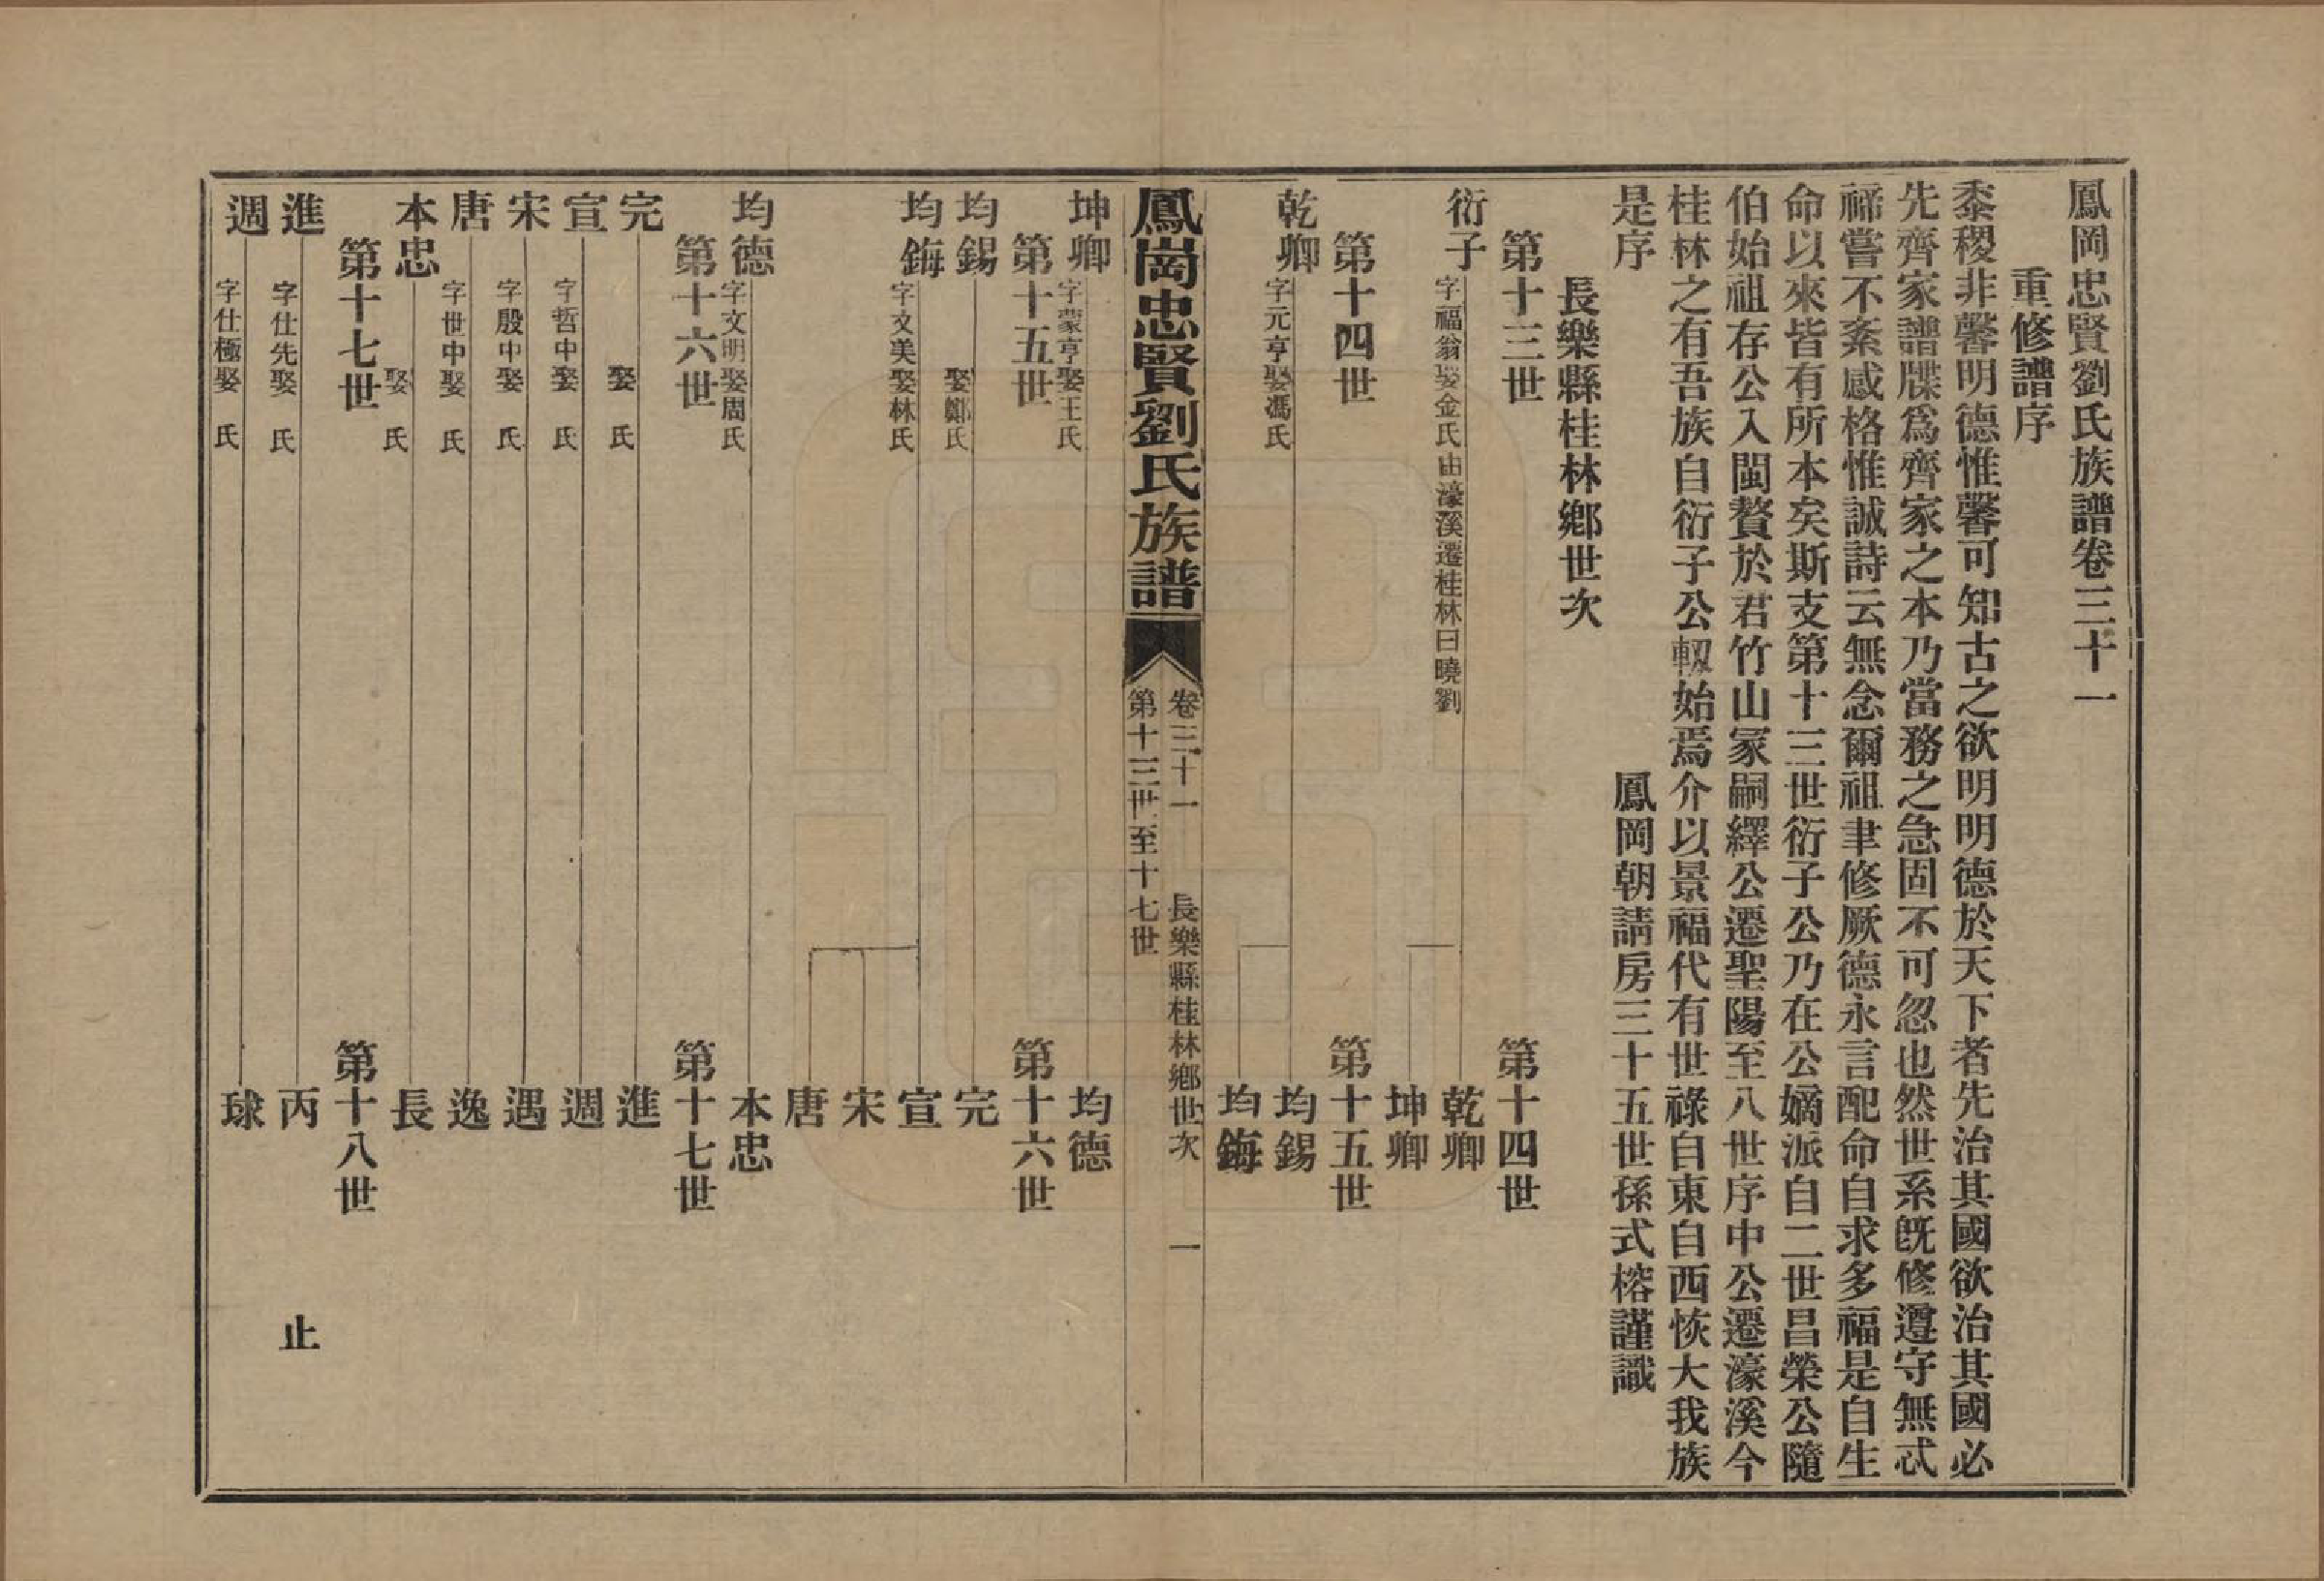 鳳岡忠賢劉氏族譜卷三十一
重修譜序
黍稷非馨明德惟馨可知古之欲明明德於天下者先治其國欲治其國必
先齊家譜牒爲齊家之本乃當務之急固不可忽也然世系既修遵守無忒
禘嘗不紊感格惟誠詩云無念爾祖聿修厥德永言配命自求多福是自生
命以來皆有所本矣斯支第十三世衍子公乃在公嫡派自二世昌榮公隨
伯始祖存公入閩贅於君竹山冢嗣繹公遷聖陽至八世序中公遷濠溪今
桂林之有吾族自衍子公軔始焉介以景福代有世祿自東自西恢大我族
是序
鳳岡朝請房三十五世孫式榕謹識
長樂縣桂林鄉世次
第十三世 第十四世
衍子 字福翁娶金氏由濠溪遷桂林曰曉劉 乾卿
坤卿
第十四世 第十五世
乾卿 字元亨娶馮氏 均錫
均鋂
鳳崗忠賢劉氏族譜
卷三十一 長樂縣桂林鄉世次 一
第十三世至十七世
坤卿 字蒙亨娶王氏 均德
第十五世 第十六世
均錫 娶鄭氏 完
均鋂 字文美娶林氏 宣
宋
唐
均德 字文明娶周氏 本忠
第十六世 第十七世
完 娶 氏 進
宣 字哲中娶 氏 週
宋 字殷中娶 氏 遇
唐 字世中娶 氏 逸
本忠 娶 氏 長
第十七世 第十八世
進 字仕先娶 氏 丙 止
週 字仕極娶 氏 球